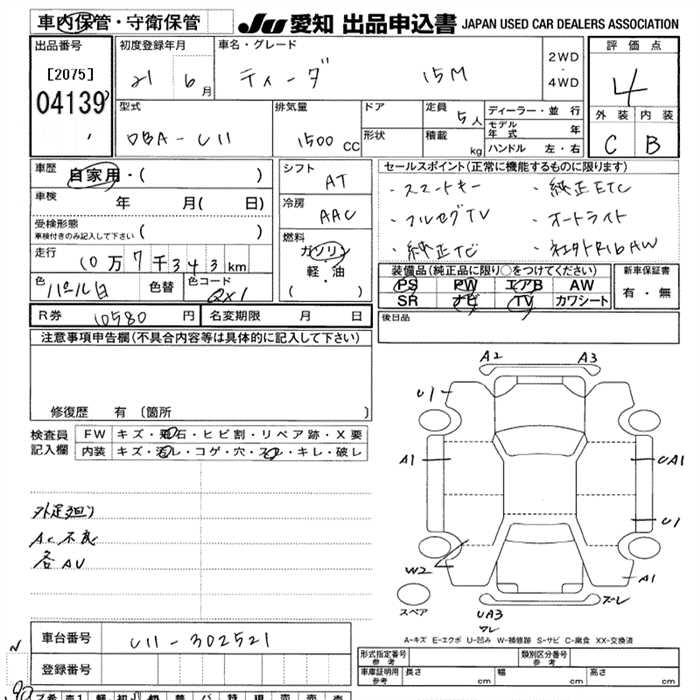 車内保管・守衛保管 JU 愛知 出品申込書 JAPAN USED CAR DEALERS ASSOCIATION
出品番号 初度登録年月 車名・グレード 評価点
[2075] 21 6月 ティーダ 15M 2WD・4WD 4
04139
型式 排気量 ドア 定員 ディーラー・並行 外装 内装
DBA-C11 1500CC 形状 5人 積載 kg モデル年式 年 ハンドル 左・右 C B
車歴 自家用・( ) シフト AT セールスポイント(正常に機能するものに限ります)
車検 年 月( 日) 冷房 AAC ・スマートキー ・純正ETC
受検形態 車検付きのみ記入して下さい ( ) ・フルセグTV ・オートライト
走行 10万7千343km 燃料 ガソリン・軽・油 ( ) ・純正 ・社外R16AW
色 パール白 色替 色コード QX1 装備品(純正品に限り○をつけてください) 新車保証書
PS PW エアB AW 有・無
SR ナビ TV カワシート
R券 10580円 名変期限 月 日 後日品
注意事項申告欄(不具合内容等は具体的に記入して下さい)
修復歴 有 〔箇所 〕
検査員記入欄 FW キズ・飛石・ヒビ割・リペア跡・X要
内装 キズ・汚レ・コゲ・穴・スレ・キレ・破レ
A2 A3
U1
A1 UA1
U1
外足廻り
AC不良
各AU
W2 A1
スペア UA3 ズレ
ワレ
A-キズ E-エクボ U-凹み W-補修跡 S-サビ C-腐食 XX-交換済
車台番号 C11-302521
登録番号
形式指定番号 参考 類別区分番号 参考
車庫証明用 参考 長さ cm 幅 cm 高さ cm